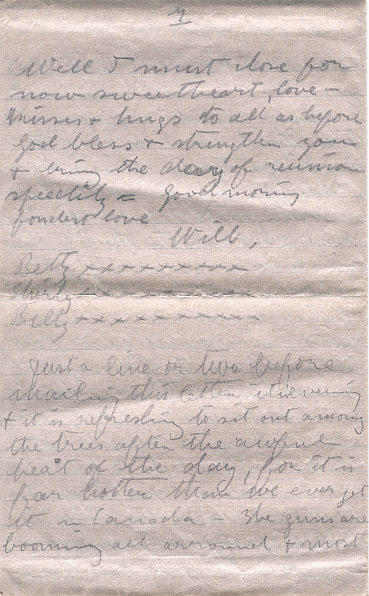 7
Well I must close for
now sweetheart, love -
kisses + hugs to all as before
God bless + strengthen you
+ bring the day of reunion
speedily = Good morning
fondest love
Will,
Betty xxxxxxxxx
Shirly xxxxxxxxx
Billy xxxxxxxxxx
Just a line or two before
mailing this letter, it is evening
+ it is refreshing to sit out among
the trees after the awful
heat of the day, for it is
far hotter than we ever get
it in Canada - The guns are
booming all arround + most